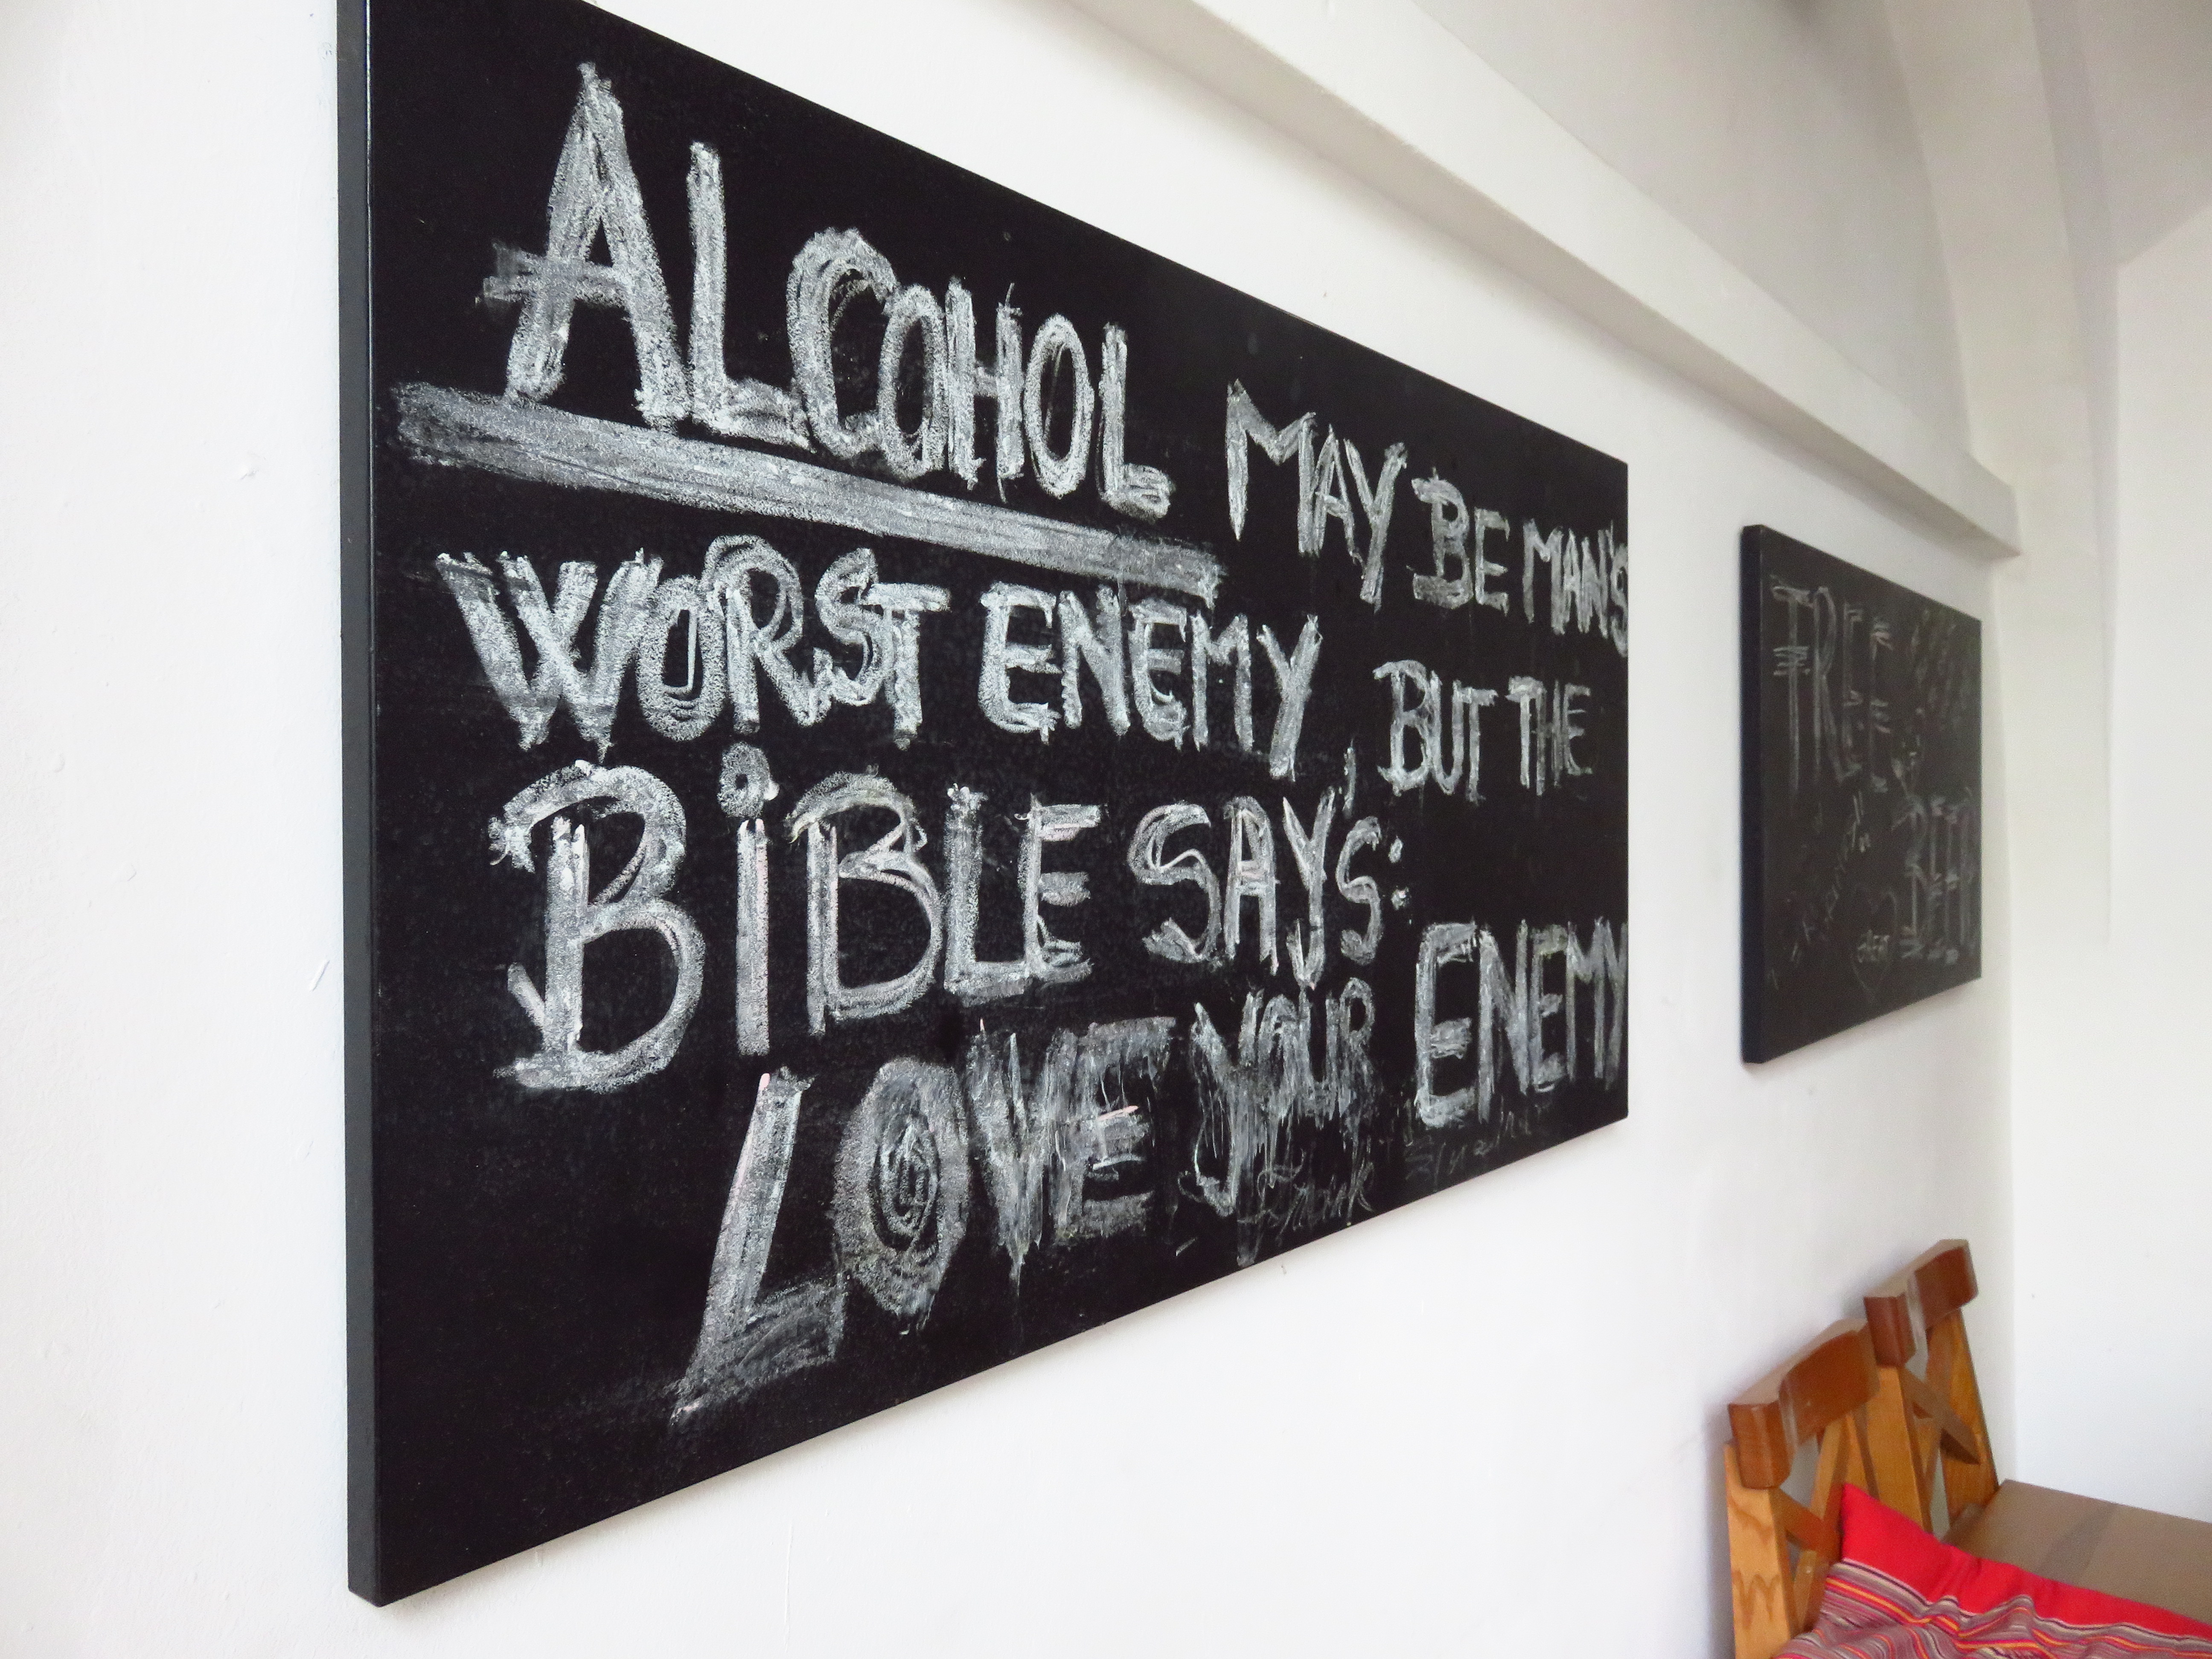 ALCOHOL MAY BE MAN'S
WORST ENEMY, BUT THE
BiBLE SAYS:
LOVE YOUR ENEMY
FREE
BEER